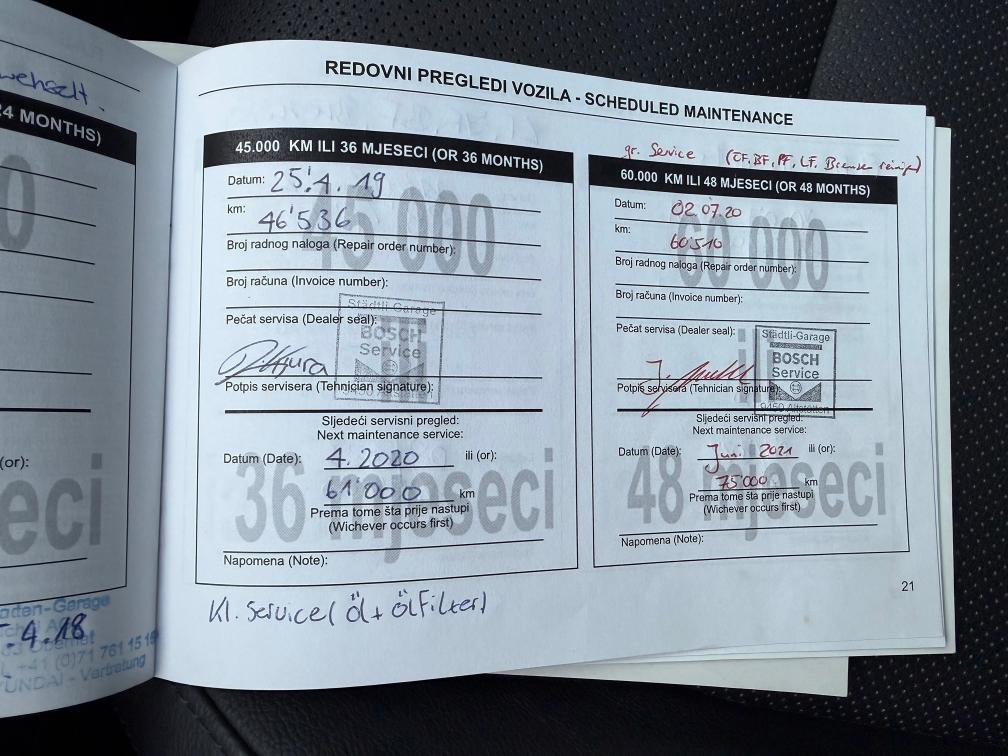 wehselt.
24 MONTHS)
(or):
4.18
+41 (0)71 761 15 16
REDOVNI PREGLEDI VOZILA - SCHEDULED MAINTENANCE
45.000 KM ILI 36 MJESECI (OR 36 MONTHS)
45 000
Datum: 25.4.19
km: 46'536
Broj radnog naloga (Repair order number):
Broj računa (Invoice number):
Pečat servisa (Dealer seal):
Städtli-Garage
BOSCH
Service
9450
Potpis servisera (Tehnician signature):
Sljedeći servisni pregled:
Next maintenance service:
Datum (Date): 4.2020 ili (or):
61'000 km
Prema tome šta prije nastupi
(Wichever occurs first)
36 mjeseci
Napomena (Note):
Kl. Service ( Öl + Ölfilter)
gr. Service (ÖF, BF, PF, LF, Bremsen
60.000 KM ILI 48 MJESECI (OR 48 MONTHS)
60 000
Datum: 02.07.20
km: 60'510
Broj radnog naloga (Repair order number):
Broj računa (Invoice number):
Pečat servisa (Dealer seal):
Städtli-Garage
BOSCH
Service
9450 Altstätten
Potpis servisera (Tehnician signature):
Sljedeći servisni pregled:
Next maintenance service:
Datum (Date): Juni 2021 ili (or):
75'000 km
Prema tome šta prije nastupi
(Wichever occurs first)
48 mjeseci
Napomena (Note):
21